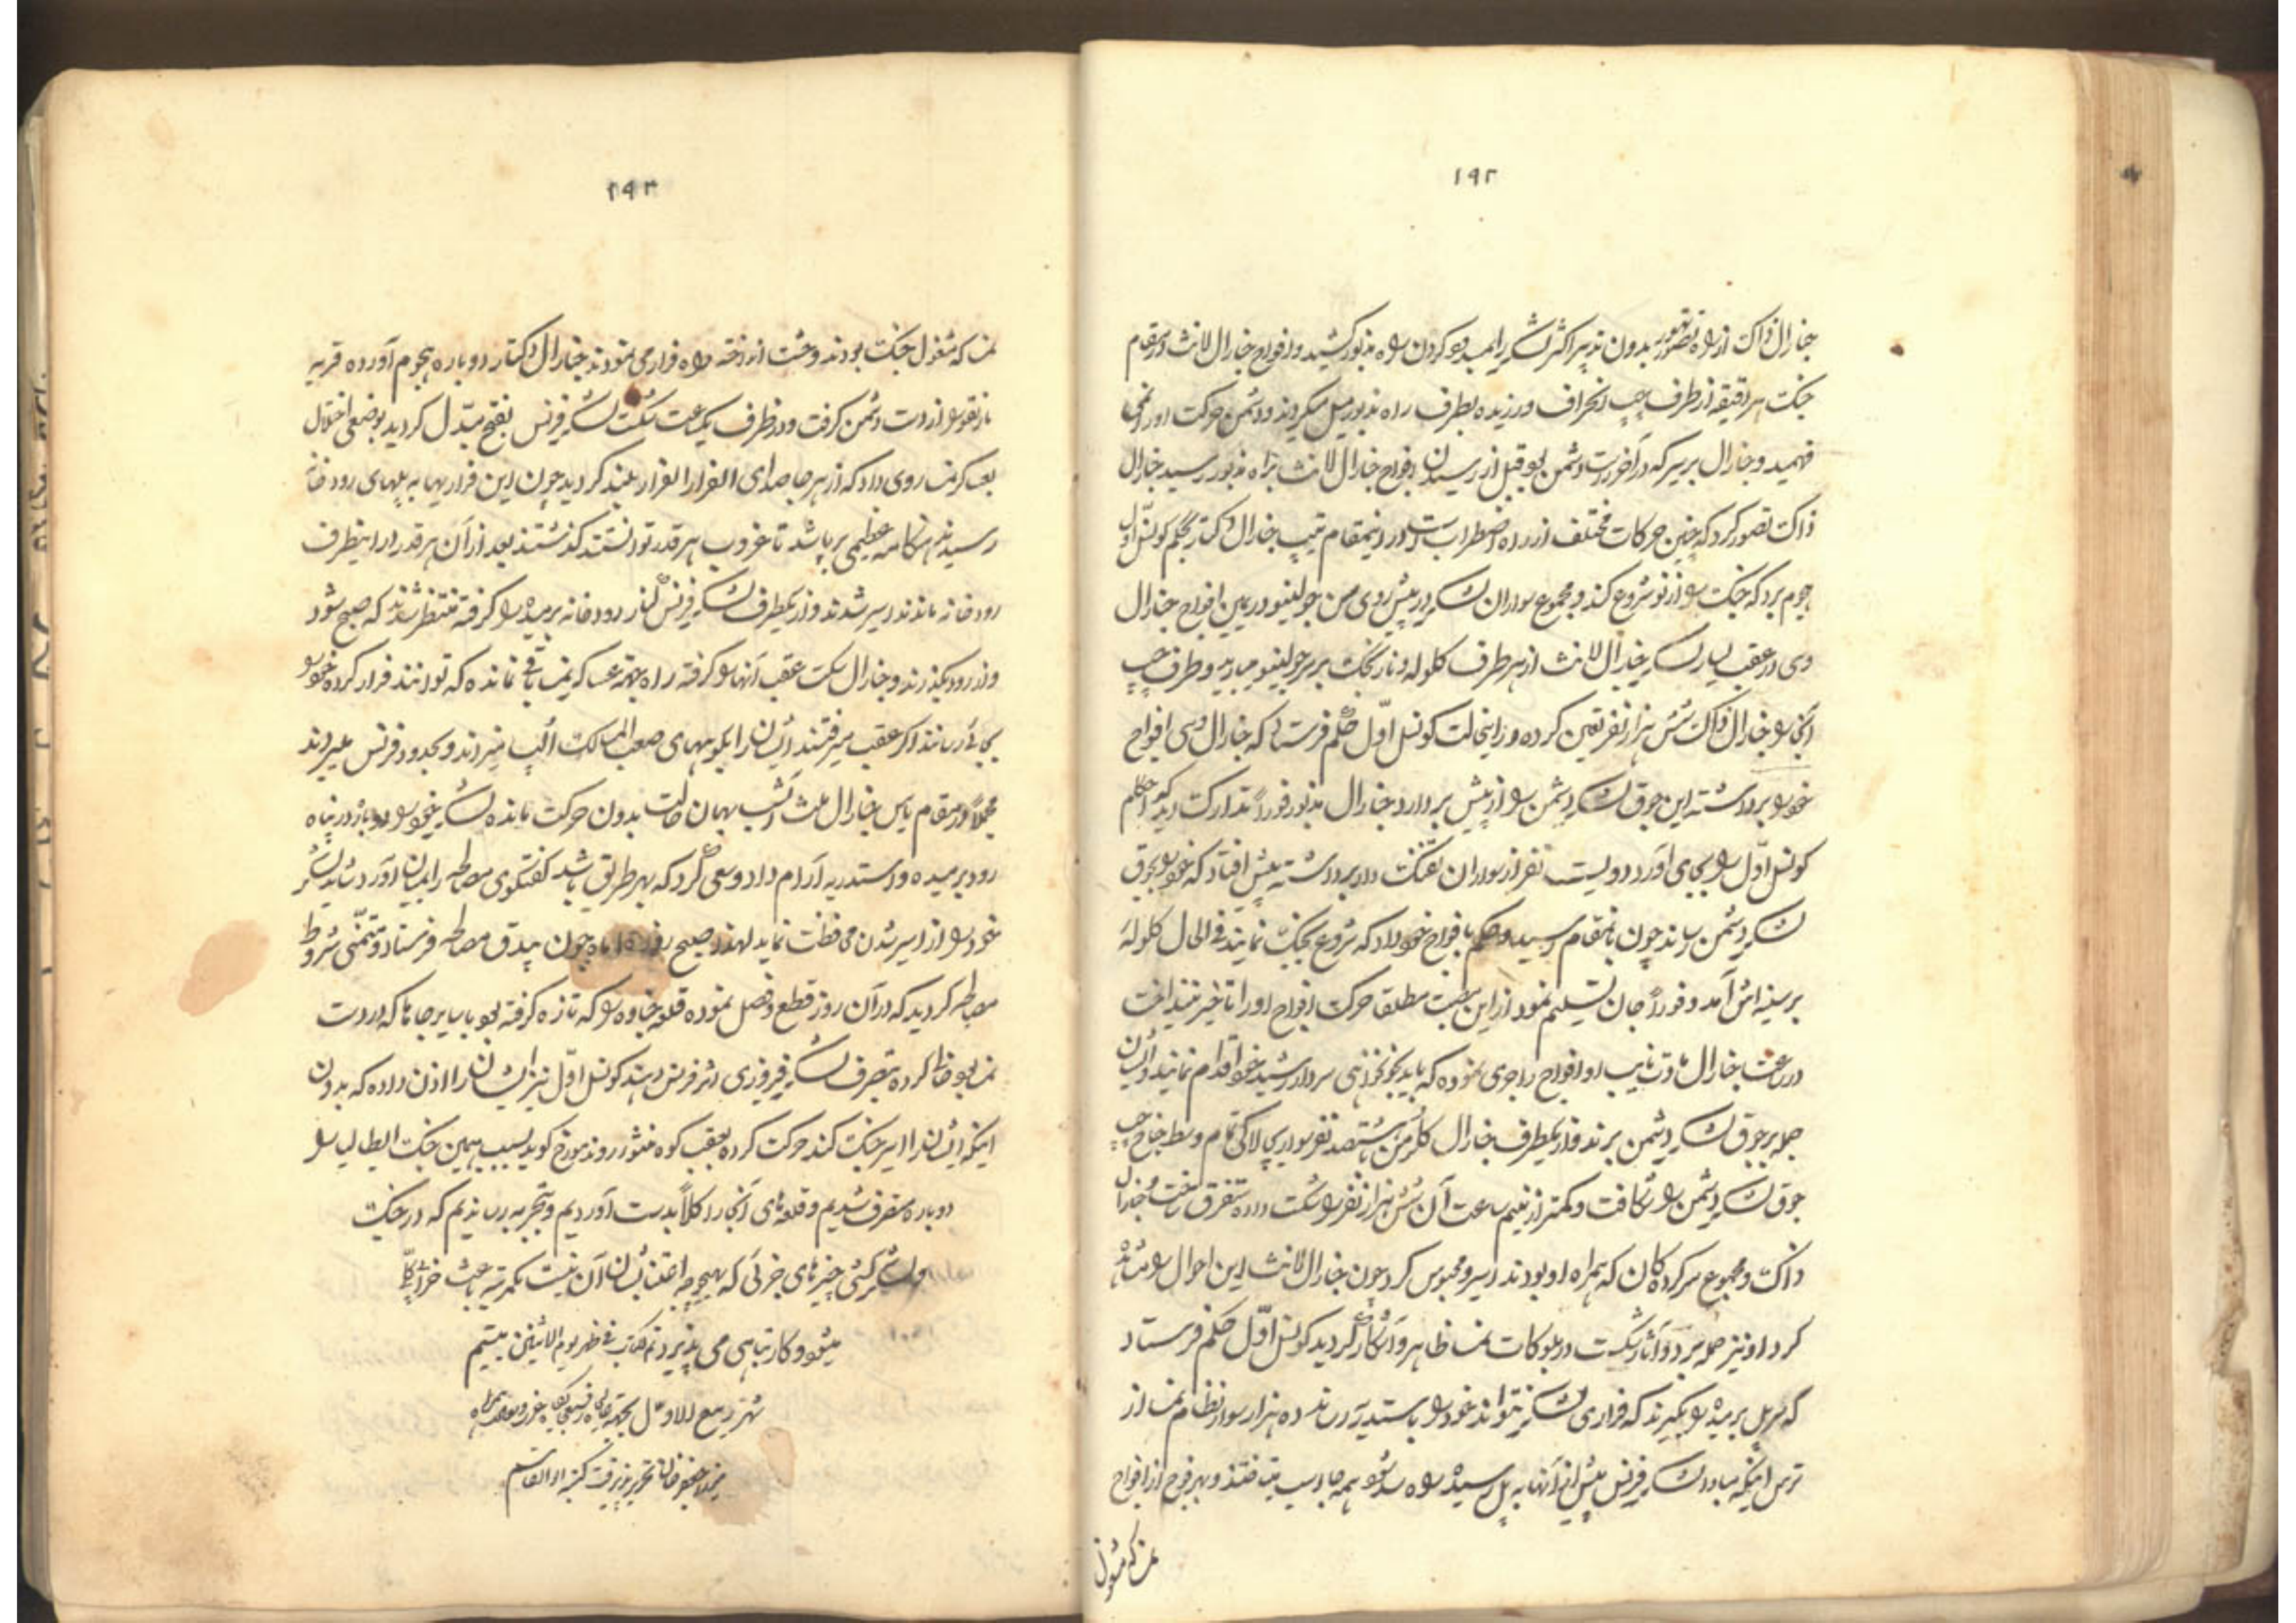 ۱۹۲
جنارال ذاک از راه تهور بدون تدبیر اکثر لشکر را بمسدود کردن راه مذکور کشید و افواج جنارال لانث در مقام
جنک هر دقیقه از طرف چپ انحراف ورزیده بطرف راه مذبور میل میکردند و دشمن حرکت او را نمی
فهمید و جنارال بریر که در آخر دست دشمن بود قبل از رسیدن افواج جنارال لانث براه مذبور رسید جنارال
ذاکت تصور کرد که چنین حرکات مختلف از راه اضطراب است در اینمقام تیپ جنارال دکتار بحکم کونسل اول
هجوم برد که جنک را از نو شروع کند و مجموع سواران لشکر در پیش روی سن جولینو در یمین افواج جنارال
وسی در عقب یسار لشکر جنارال لانث از هر طرف کلوله و نارنجک بر سر جولینو میبارید و طرف چپ
آنجا را جنارال ذاک شش هزار نفر تعین کرده در اینحالت کونسل اول حکم فرستاد که جنارال وسی افواج
خود را برداشته این جوق لشکر دشمن را از پیش بردارد جنارال مذبور فوراً تدارک دیده احکام
کونسل اول را بجای آورد دویست نفر از سواران تفنک دار برداشته پیش افتاد که خود را بجوق
لشکر دشمن رساند چون بانمقام رسید و حکم بافواج خود داد که شروع بجنک نمایند فی الحال کلولهٔ
بر سینه اش آمد و فوراً جان تسلیم نمود از این سبب مطلقا حرکت افواج او را تاخیر نینداخت
در ساعت جنارال بادت نایب او افواج را جری نموده که باید بخونخواهی سردار رشید خود اقدام نمایند و ایشان
حمله بر جوق لشکر دشمن برند و از یکطرف جنارال کلرمن ششصد نفر سواری لاکی تمام وسط جناح چپ
جوق لشکر دشمن را شکافت و کمتر از نیم ساعت آن شش هزار نفر را شکست داده متفرق ساخت و جنارال
ذاکت و مجموع سرکردهکان که همراه او بودند اسیر و محبوس کرد چون جنارال لانث این احوال را مشاهده
کرد او نیز حمله برد و آثار شکست در بلوکات نمسا ظاهر و آشکار کردید کونسل اول حکم فرستاد
که سر پل برمیده را بکیرند که فراری لشکر نتواند خود را باستدریه رساند ده هزار سوار نظام نمسا از
ترس اینکه مبادا لشکر فرنس پیش از آنها به پل رسیده راه مسدود شود همه جا اسب میتاختند و بهر فوج از افواج
نمسا که مشغول
۱۹۳
نمسا که مشغول جنک بودند وحشت انداخته راه فرار می نمودند جنارال دکتار دوباره هجوم آورده قریه
مارنقو را از دست دشمن کرفت و در ظرف یکساعت شکست لشکر فرنس بفتح مبدل کردید بوضعی اختلال
بعساکر نمسا روی داد که از هر جا صدای الفرار الفرار بلند کردید چون این فراریها به پلهای رودخانه
رسیدند هنکامه عظیمی بر پا شد تا غروب هر قدر توانستند کذشتند بعد از آن هر قدر در اینطرف
رودخانه ماندند اسیر شدند و از یکطرف لشکر فرنس کنار رودخانه برمیده را کرفته منتظر شدند که صبح شود
و از رود بکذرند و جنارال سکت عقب آنها را کرفته راه بجهة عساکر نمسا باقی نمانده که توانند فرار کرده خود را
بجائی رسانند اکر عقب میرفتند ایشان را بکوههای صعب المسالک الپ میبردند و بحدود فرنس میبردند
مجملاً در مقام یاس جنارال ملث آنشب بهمان حالت بدون حرکت مانده لشکر خود را دوباره در پناه
رود برمیده و استدریه آرام داد و سعی کرد که بهر طریق باشد کفتکوی مصالحه را بمیان آورد شاید لشکر
خود را از اسیر شدن محافظت نماید لهذا صبح روز ۱۵ ماه جون بیدق مصالحه فرستاد و متمنی شروط
مصالحه کردید که در آن روز قطع و فصل نموده قلعه جناوه را که تازه کرفته بود با سایر جاها که در دست
نمسا بود خالی کرده بتصرف لشکر فیروزی اثر فرنس دهند کونسل اول نیز ایشان را اذن داده که بدون
اینکه ایشانرا اسیر جنک کنند حرکت کرده بعقب کوه منثور روند مورخ کوید بسبب همین جنک ایطالیا را
دوباره متصرف شدیم و قلعه های آنجا را کلاً بدست آوردیم و بتجربه رساندیم که در جنک
و لشکر کشی چیزهای جزئی که بهیچوجه اعتنا بشان آن نیست بمرتبه باعث خرابی کلی
میشود و کار تباهی می پذیرد تم کتاب فی ظهر یوم الاثنین بیستم
شهر ربیع الاول بجهة عالیجاه رفیع جایکاه عزت و سعادت همراه
میرزا جعفر خان تحریر پذیرفت کتبه ابوالقاسم